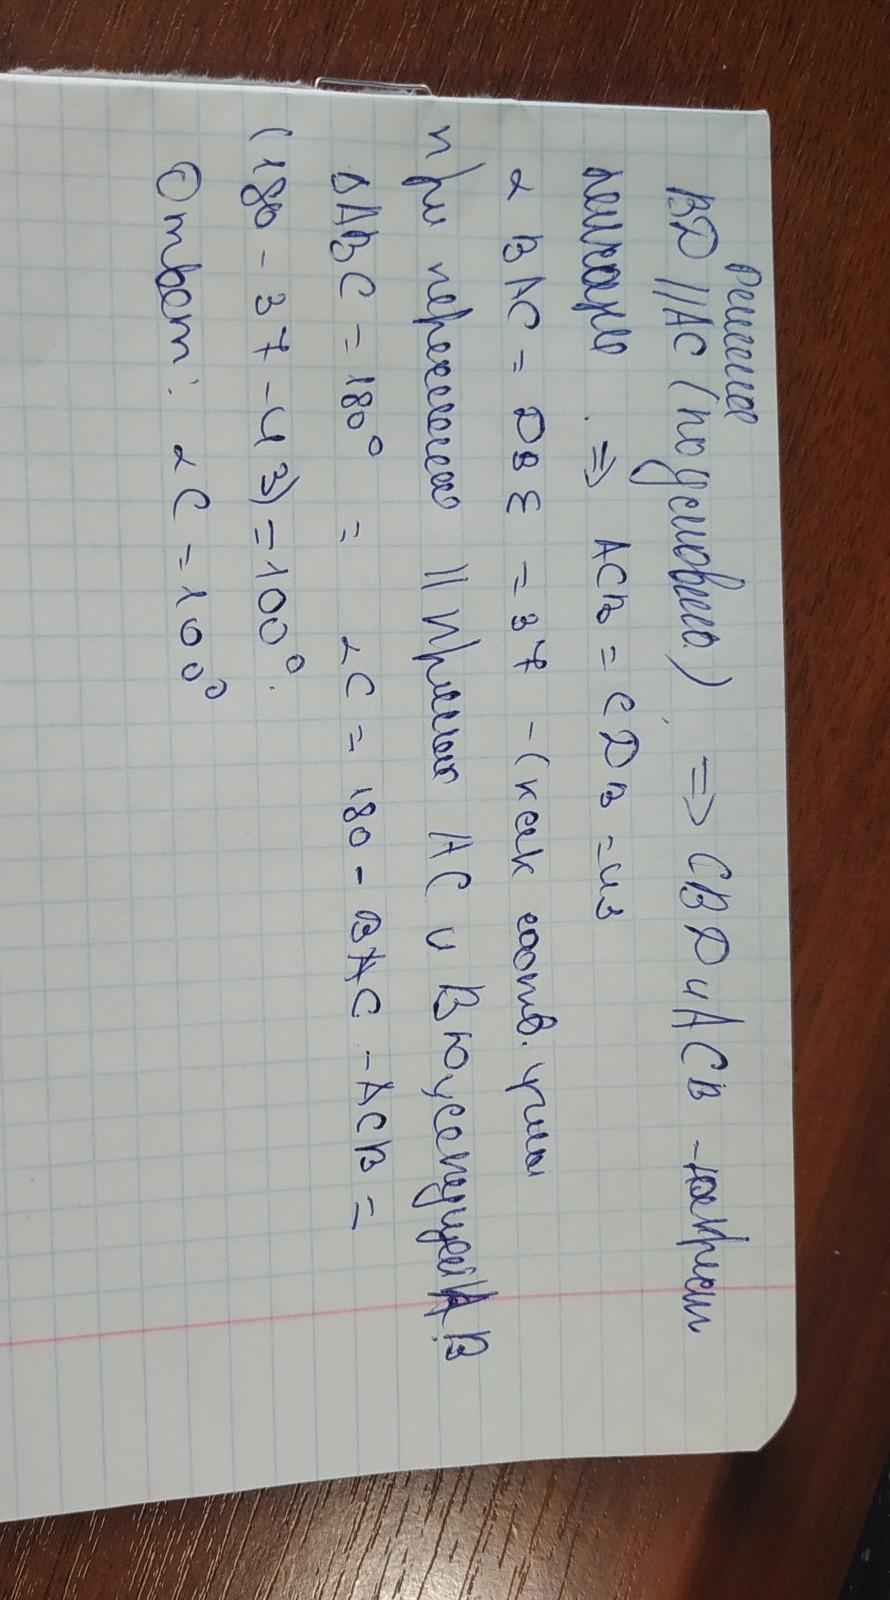 Решение
BD || AC (по условию) => CBD и ACB - накрест
лежащие. => ACB = CDB = 43
∠ BAC = DBE = 37 - (как соотв. углы
при пересечении || прямых AC и B и секущей AB
△ABC = 180° = ∠C = 180 - BAC - ACB =
(180 - 37 - 43) = 100°.
Ответ: ∠C = 100°